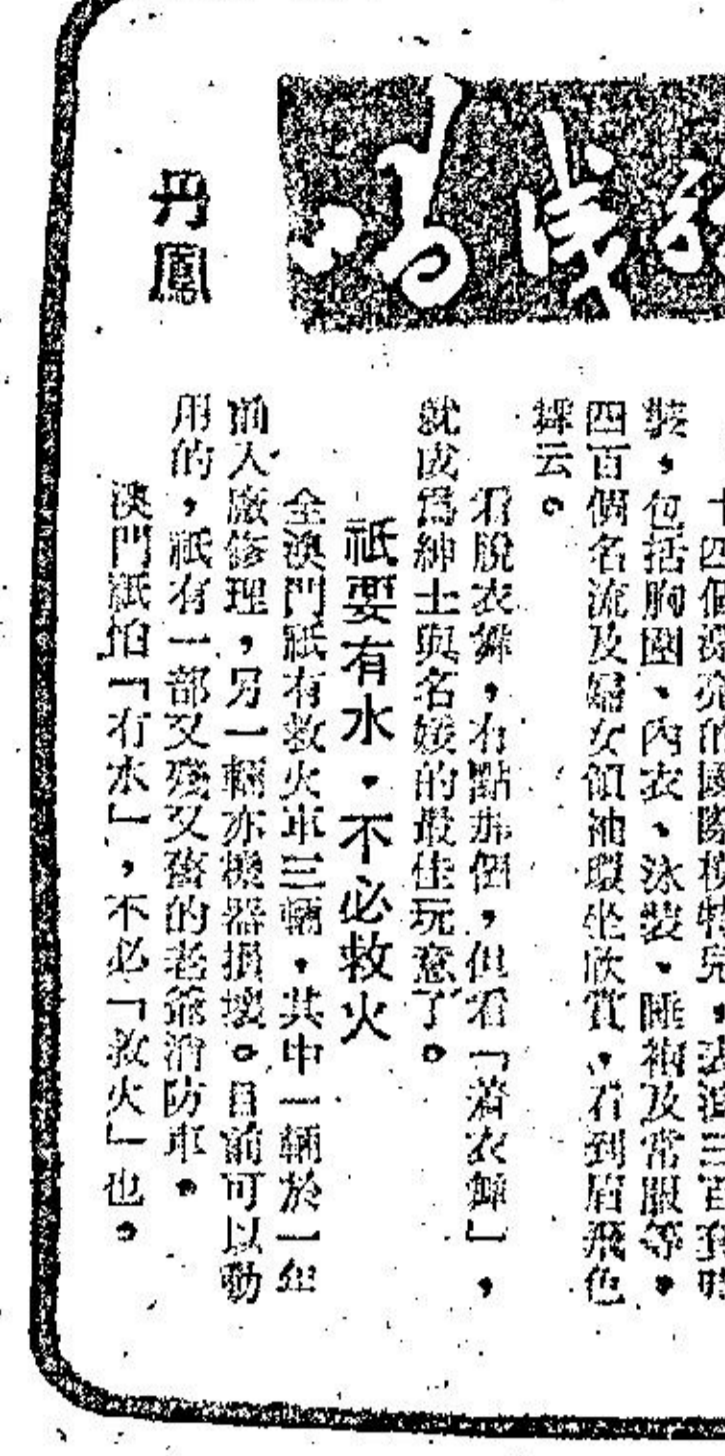 丹鳳
十四個漂亮的國際模特兒，表演三百套時
裝，包括胸圍、內衣、泳裝、睡袍及常服等。
四百個名流及婦女領袖環坐欣賞，看到眉飛色
舞云。
看脫衣舞，有點那個，但看「着衣舞」，
就成爲紳士與名媛的最佳玩意了。
祇要有水・不必救火
全澳門祇有救火車三輛，其中一輛於一年
前入廠修理，另一輛亦機器損壞。目前可以動
用的，祇有一部又殘又舊的老爺消防車。
澳門祇怕「冇水」，不必「救火」也。